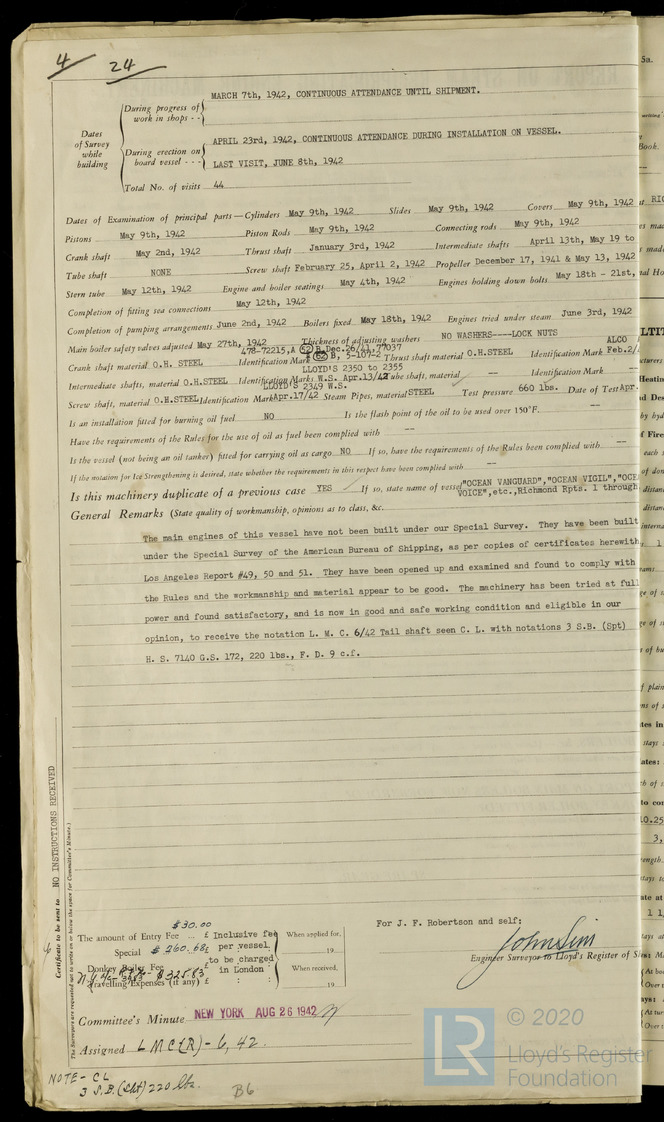 4 24
MARCH 7th, 1942, CONTINUOUS ATTENDANCE UNTIL SHIPMENT.
During progress of work in shops - -
Dates of Survey while building
APRIL 23rd, 1942, CONTINUOUS ATTENDANCE DURING INSTALLATION ON VESSEL.
During erection on board vessel - - -
LAST VISIT, JUNE 8th, 1942
Total No. of visits 44
Dates of Examination of principal parts—Cylinders May 9th, 1942 Slides May 9th, 1942 Covers May 9th, 1942
Pistons May 9th, 1942 Piston Rods May 9th, 1942 Connecting rods May 9th, 1942
Crank shaft May 2nd, 1942 Thrust shaft January 3rd, 1942 Intermediate shafts April 13th, May 19 to
Tube shaft NONE Screw shaft February 25, April 2, 1942 Propeller December 17, 1941 & May 13, 1942
Stern tube May 12th, 1942 Engine and boiler seatings May 4th, 1942 Engines holding down bolts May 18th - 21st,
Completion of fitting sea connections May 12th, 1942
Completion of pumping arrangements June 2nd, 1942 Boilers fixed May 18th, 1942 Engines tried under steam June 3rd, 1942
Main boiler safety valves adjusted May 27th, 1942 Thickness of adjusting washers NO WASHERS----LOCK NUTS
478-72215,A 52 B Dec.26/41, 77037 ALCO
Crank shaft material O.H. STEEL Identification Mark 62 B, 5-107-2 Thrust shaft material O.H.STEEL Identification Mark Feb.2/
LLOYD'S 2350 to 2355
Intermediate shafts, material O.H.STEEL Identification Marks W.S. Apr.13/42 Tube shaft, material -- Identification Mark --
LLOYD'S 2349 W.S.
Screw shaft, material O.H.STEEL Identification Mark Apr.17/42 Steam Pipes, material STEEL Test pressure 660 lbs. Date of Test Apr.
Is an installation fitted for burning oil fuel NO Is the flash point of the oil to be used over 150°F. --
Have the requirements of the Rules for the use of oil as fuel been complied with --
Is the vessel (not being an oil tanker) fitted for carrying oil as cargo NO If so, have the requirements of the Rules been complied with --
If the notation for Ice Strengthening is desired, state whether the requirements in this respect have been complied with --
Is this machinery duplicate of a previous case YES If so, state name of vessel "OCEAN VANGUARD","OCEAN VIGIL","OCE
VOICE",etc.,Richmond Rpts. 1 through
General Remarks (State quality of workmanship, opinions as to class, &c.
The main engines of this vessel have not been built under our Special Survey. They have been built
under the Special Survey of the American Bureau of Shipping, as per copies of certificates herewith,
Los Angeles Report #49, 50 and 51. They have been opened up and examined and found to comply with
the Rules and the workmanship and material appear to be good. The machinery has been tried at full
power and found satisfactory, and is now in good and safe working condition and eligible in our
opinion, to receive the notation L. M. C. 6/42 Tail shaft seen C. L. with notations 3 S.B. (Spt)
H. S. 7140 G.S. 172, 220 lbs., F. D. 9 c.f.
Certificate to be sent to NO INSTRUCTIONS RECEIVED
(The Surveyors are requested not to write on or below the space for Committee's Minute.)
$30.00
The amount of Entry Fee ... £ Inclusive fee
Special $ 260.68 £ per vessel
to be charged
Donkey Boiler Fee £ in London
Travelling Expenses (if any) £
When applied for,
19
When received,
19
For J. F. Robertson and self:
John Sim
Engineer Surveyor to Lloyd's Register of
Committee's Minute NEW YORK AUG 26 1942
Assigned L M C (R) - 6, 42.
NOTE - CL
3 S.B. (Spt) 220 lbs.
B6
LR © 2020
Lloyd's Register
Foundation